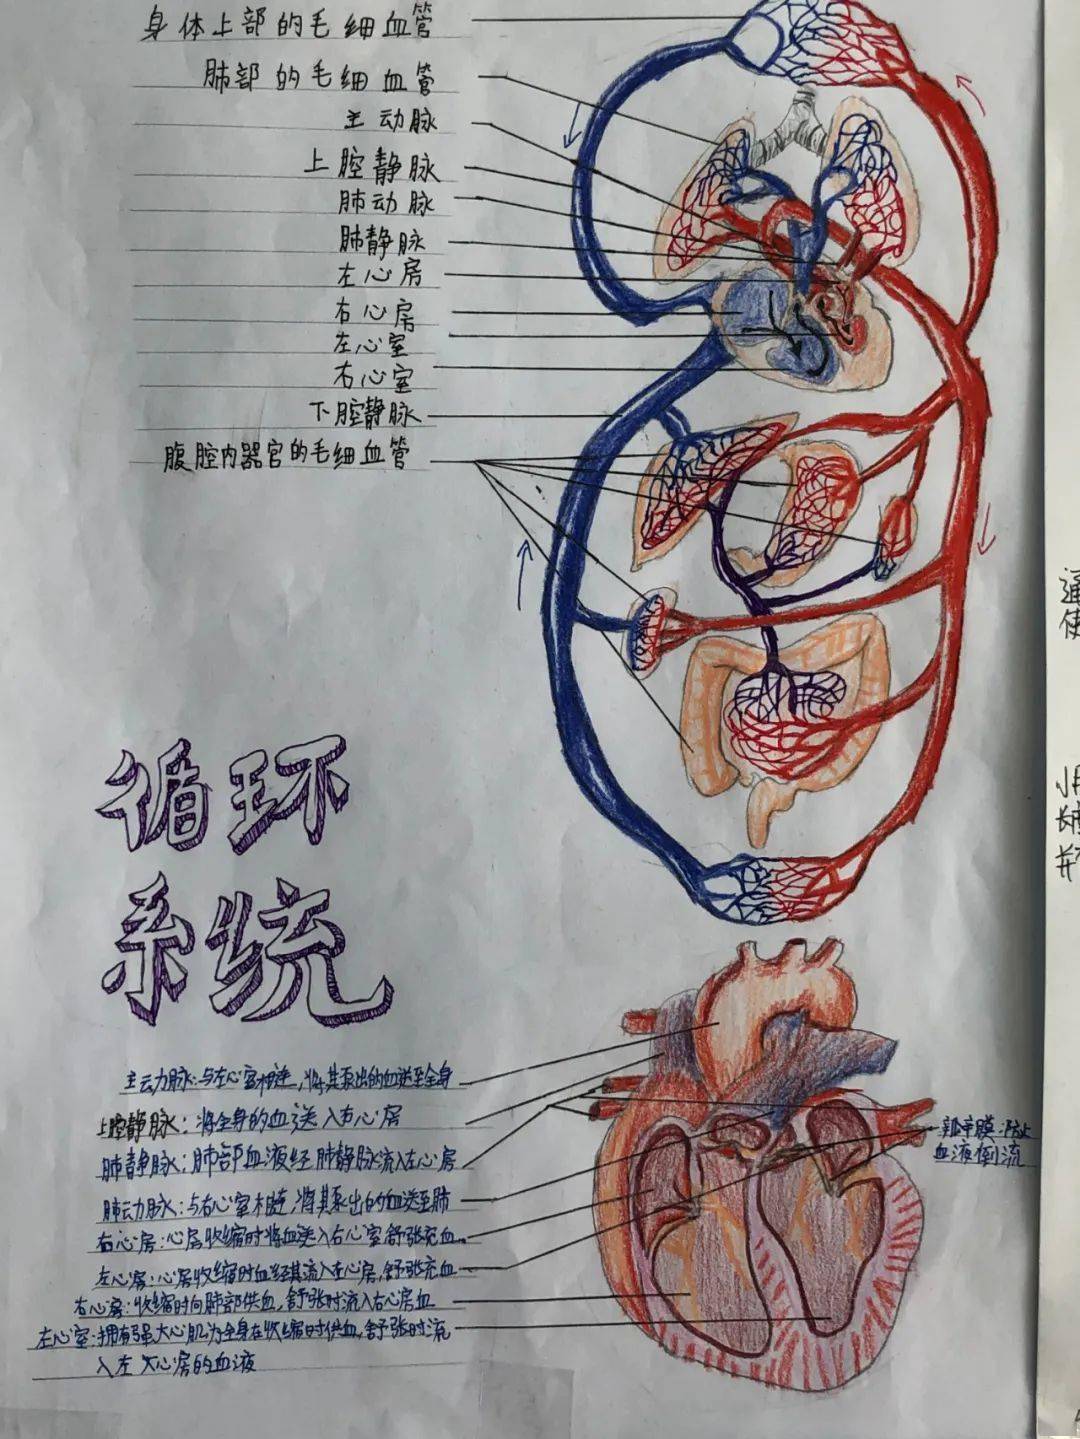 身体上部的毛细血管
肺部的毛细血管
主动脉
上腔静脉
肺动脉
肺静脉
左心房
右心房
左心室
右心室
下腔静脉
腹腔内器官的毛细血管
循环
系统
主动脉:与左心室相连,将其泵出的血送至全身
上腔静脉:将全身的血送入右心房
肺静脉:肺部血液经肺静脉流入左心房
肺动脉:与右心室相连,将其泵出的血送至肺
右心房:心房收缩时将血送入右心室舒张充血。
左心房:心房收缩时血经其流入左心房,舒张充血
右心房:收缩时向肺部供血,舒张时流入右心房血
左心室:拥有强大心肌为全身在收缩时供血,舒张时流
入左 心房的血液
瓣膜:防止
血液倒流
通
使